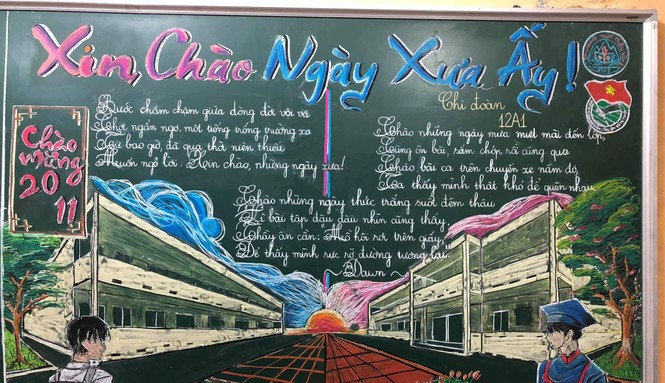 Xin Chào Ngày Xưa Ấy!
Chi đoàn
12A1
Chào
mừng
20
11
Bước chầm chậm giữa dòng đời vội vã
Chợt ngẩn ngơ, một tiếng trống trường xa
Từ bao giờ, đã qua, thời niên thiếu
Muốn ngỏ lời: Xin chào, những ngày xưa!
Chào những ngày mưa miệt mài đến lớp,
Cùng ôn bài, sấm chớp rã cũng qua
Chào bài ca trên chuyến xe năm đó,
Ta thấy mình thật khó để quên nhau.
Chào những ngày thức trắng suốt đêm thâu
Vì bài tập đâu đâu nhìn cũng thấy
Thầy ân cần: Mồ hôi rơi trên giấy,
Để thấy mình rực rỡ đường tương lai"
~ Dawn ~